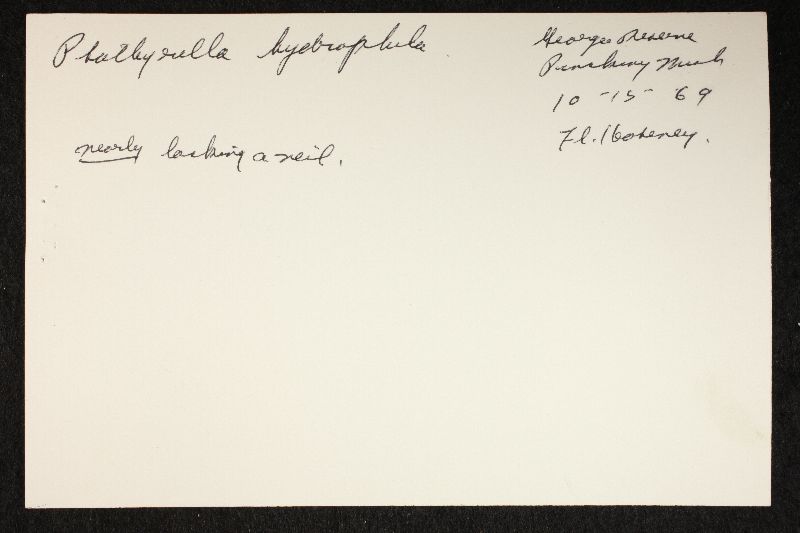 Psathyrella hydrophila
George Reserve
Pinckney Mich
10-15-69
Fl. Hoseney.
nearly lacking a veil.